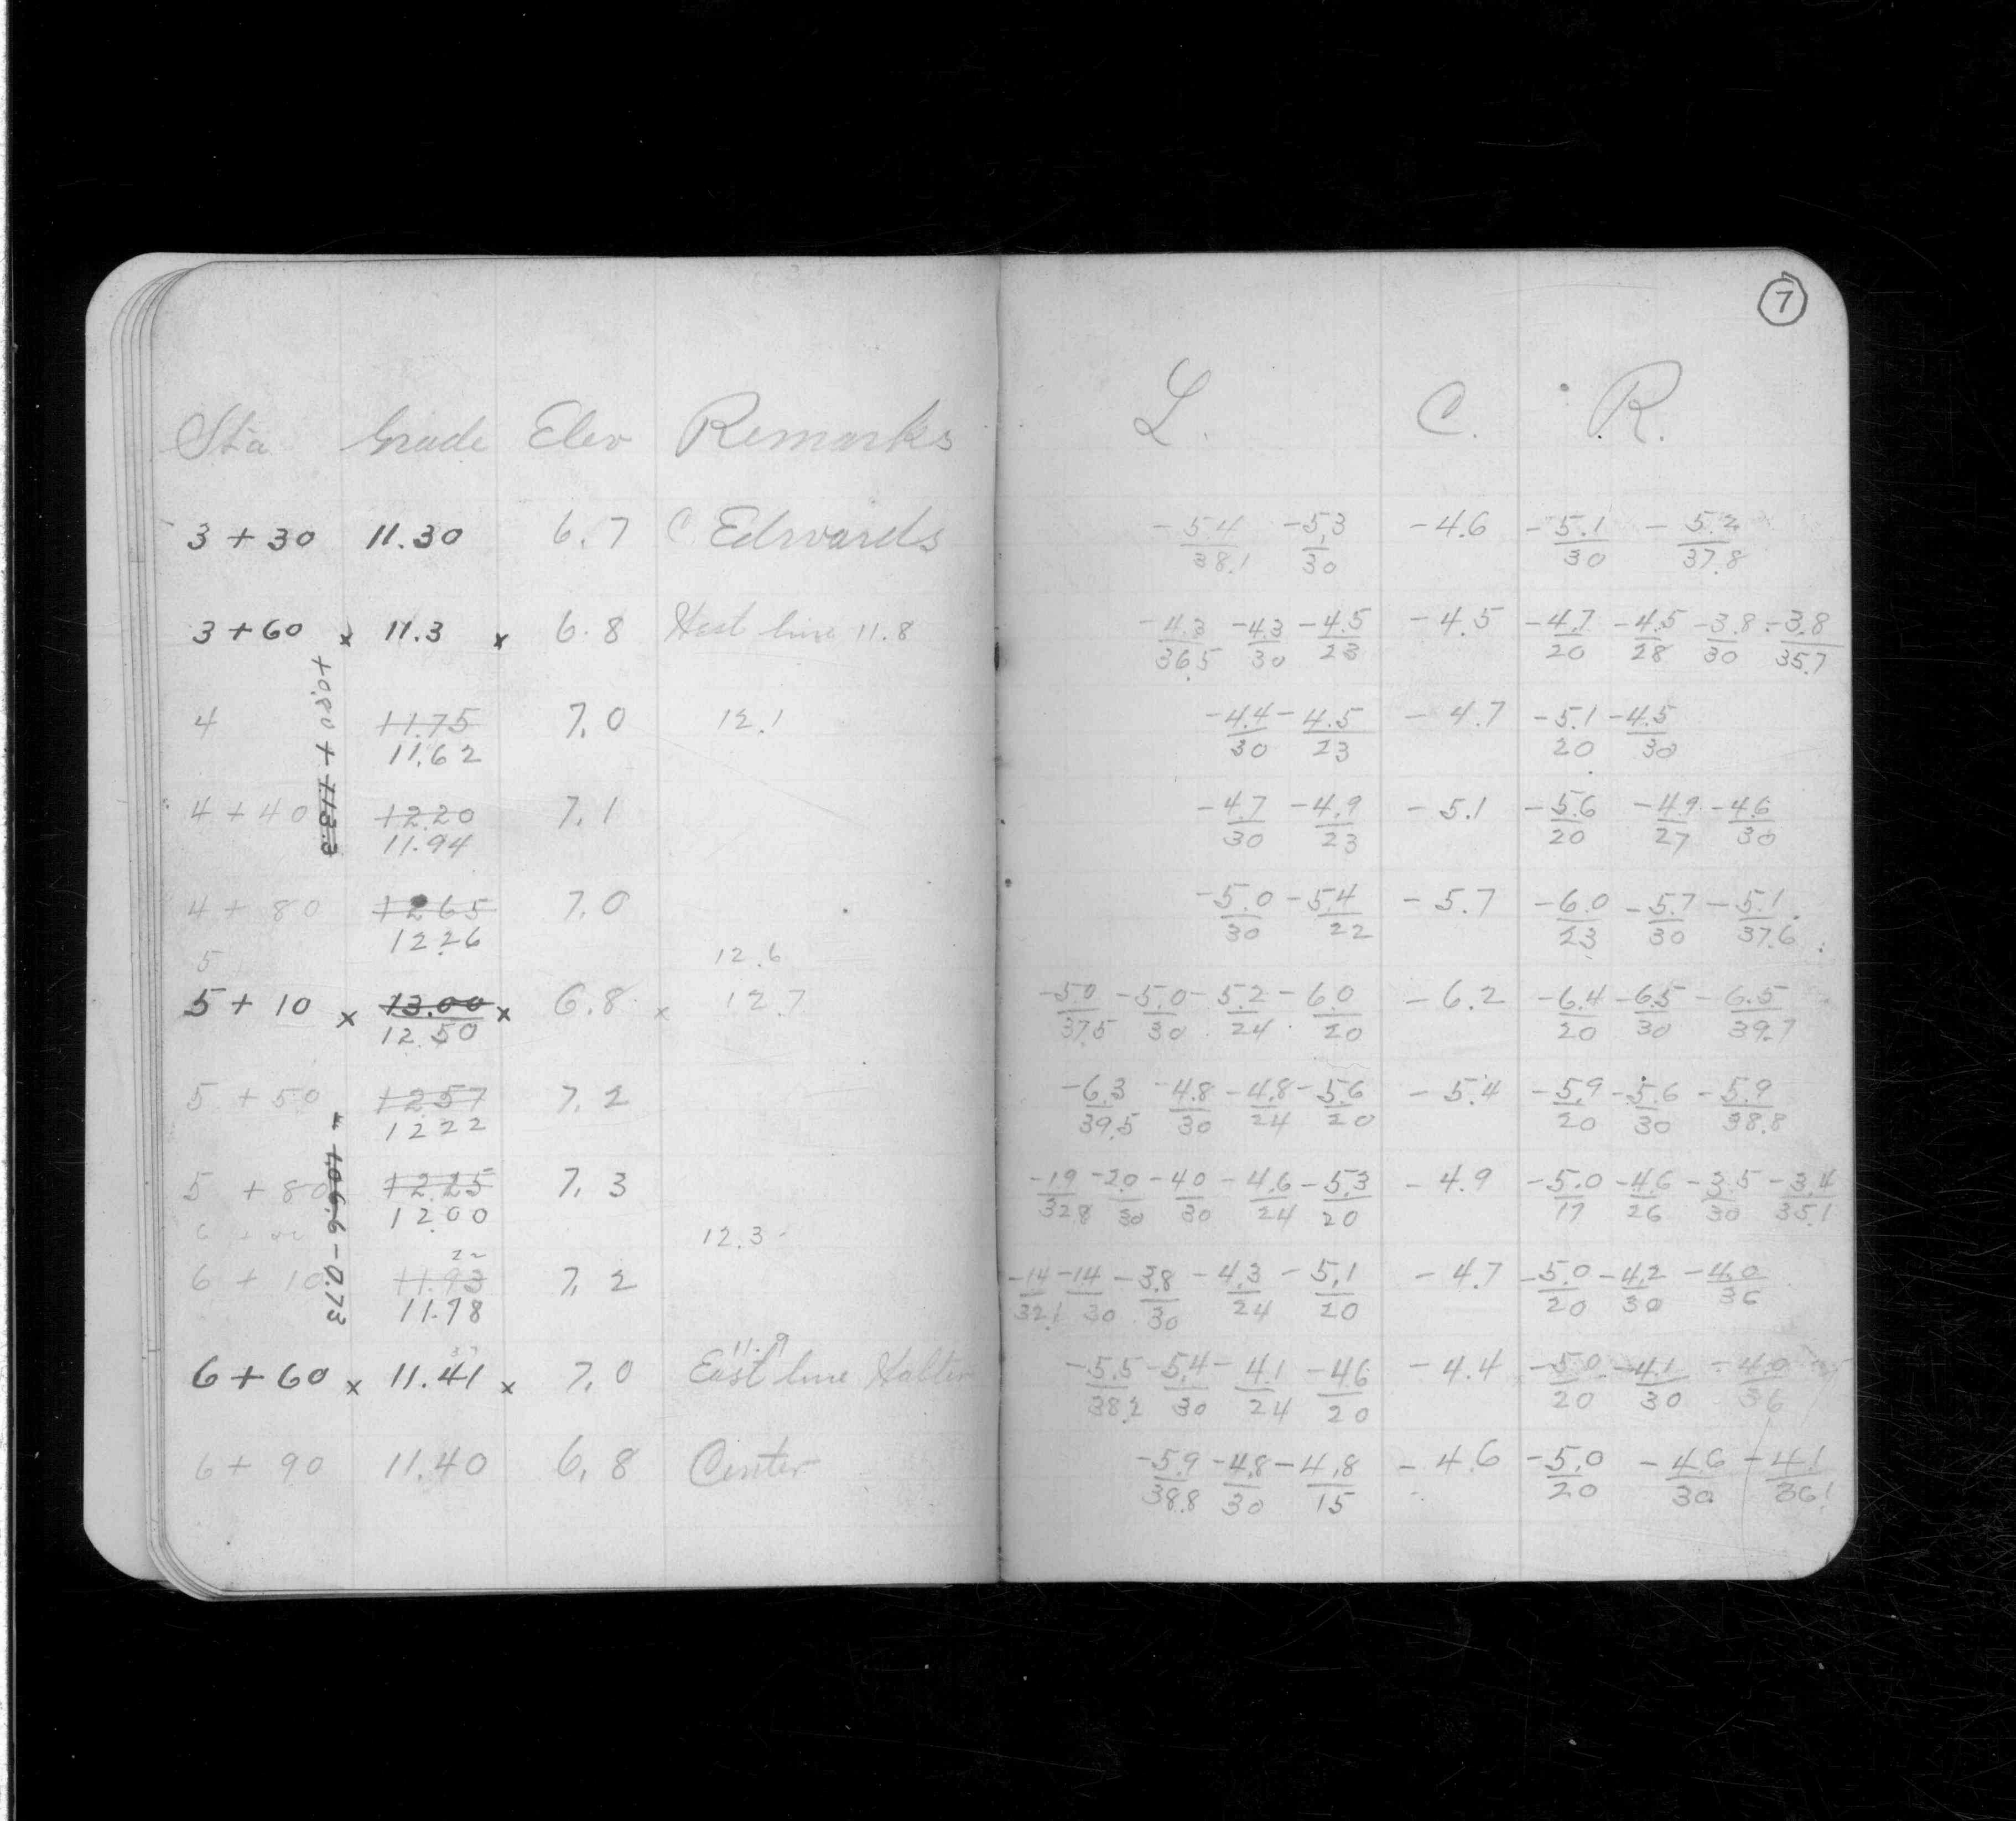 7
Sta Grade Elev Remarks L. C. R.
3 + 30 11.30 6.7 C Edwards -5.4/38.1 -5.3/30 -4.6 -5.1/30 -5.2/37.8
3 + 60 x 11.3 x 6.8 West line 11.8 -4.3/36.5 -4.3/30 -4.5/23 -4.5 -4.7/20 -4.5/28 -3.8/30 -3.8/35.7
+0.80 +
4 11.75 7.0 12.1 -4.4/30 -4.5/23 -4.7 -5.1/20 -4.5/30
11.62
4 + 40 12.20 7.1 -4.7/30 -4.9/23 -5.1 -5.6/20 -4.9/27 -4.6/30
11.94
4 + 80 12.65 7.0 -5.0/30 -5.4/22 -5.7 -6.0/23 -5.7/30 -5.1/37.6
12.26
5 12.6
5 + 10 x 13.00 x 6.8 x 12.7 -5.0/37.5 -5.0/30 -5.2/24 -6.0/20 -6.2 -6.4/20 -6.5/30 -6.5/39.7
12.50
5 + 50 12.57 7.2 -6.3/39.5 -4.8/30 -4.8/24 -5.6/20 -5.4 -5.9/20 -5.6/30 -5.9/38.8
12.22
-0.73
5 + 80 12.25 7.3 -19/32.8 -20/30 -40/30 -4.6/24 -5.3/20 -4.9 -5.0/17 -4.6/26 -3.5/30 -3.4/35.1
12.00
6 12.3
6 + 10 11.93 7.2 -14/32.1 -14/30 -3.8/30 -4.3/24 -5.1/20 -4.7 -5.0/20 -4.2/30 -4.0/36
11.78
11.9
6 + 60 x 11.41 x 7.0 East line -5.5/38.2 -5.4/30 -4.1/24 -4.6/20 -4.4 -5.0/20 -4.1/30 -4.0/36
6 + 90 11.40 6.8 Center -5.9/38.8 -4.8/30 -4.8/15 -4.6 -5.0/20 -4.6/30 -4.1/36.1